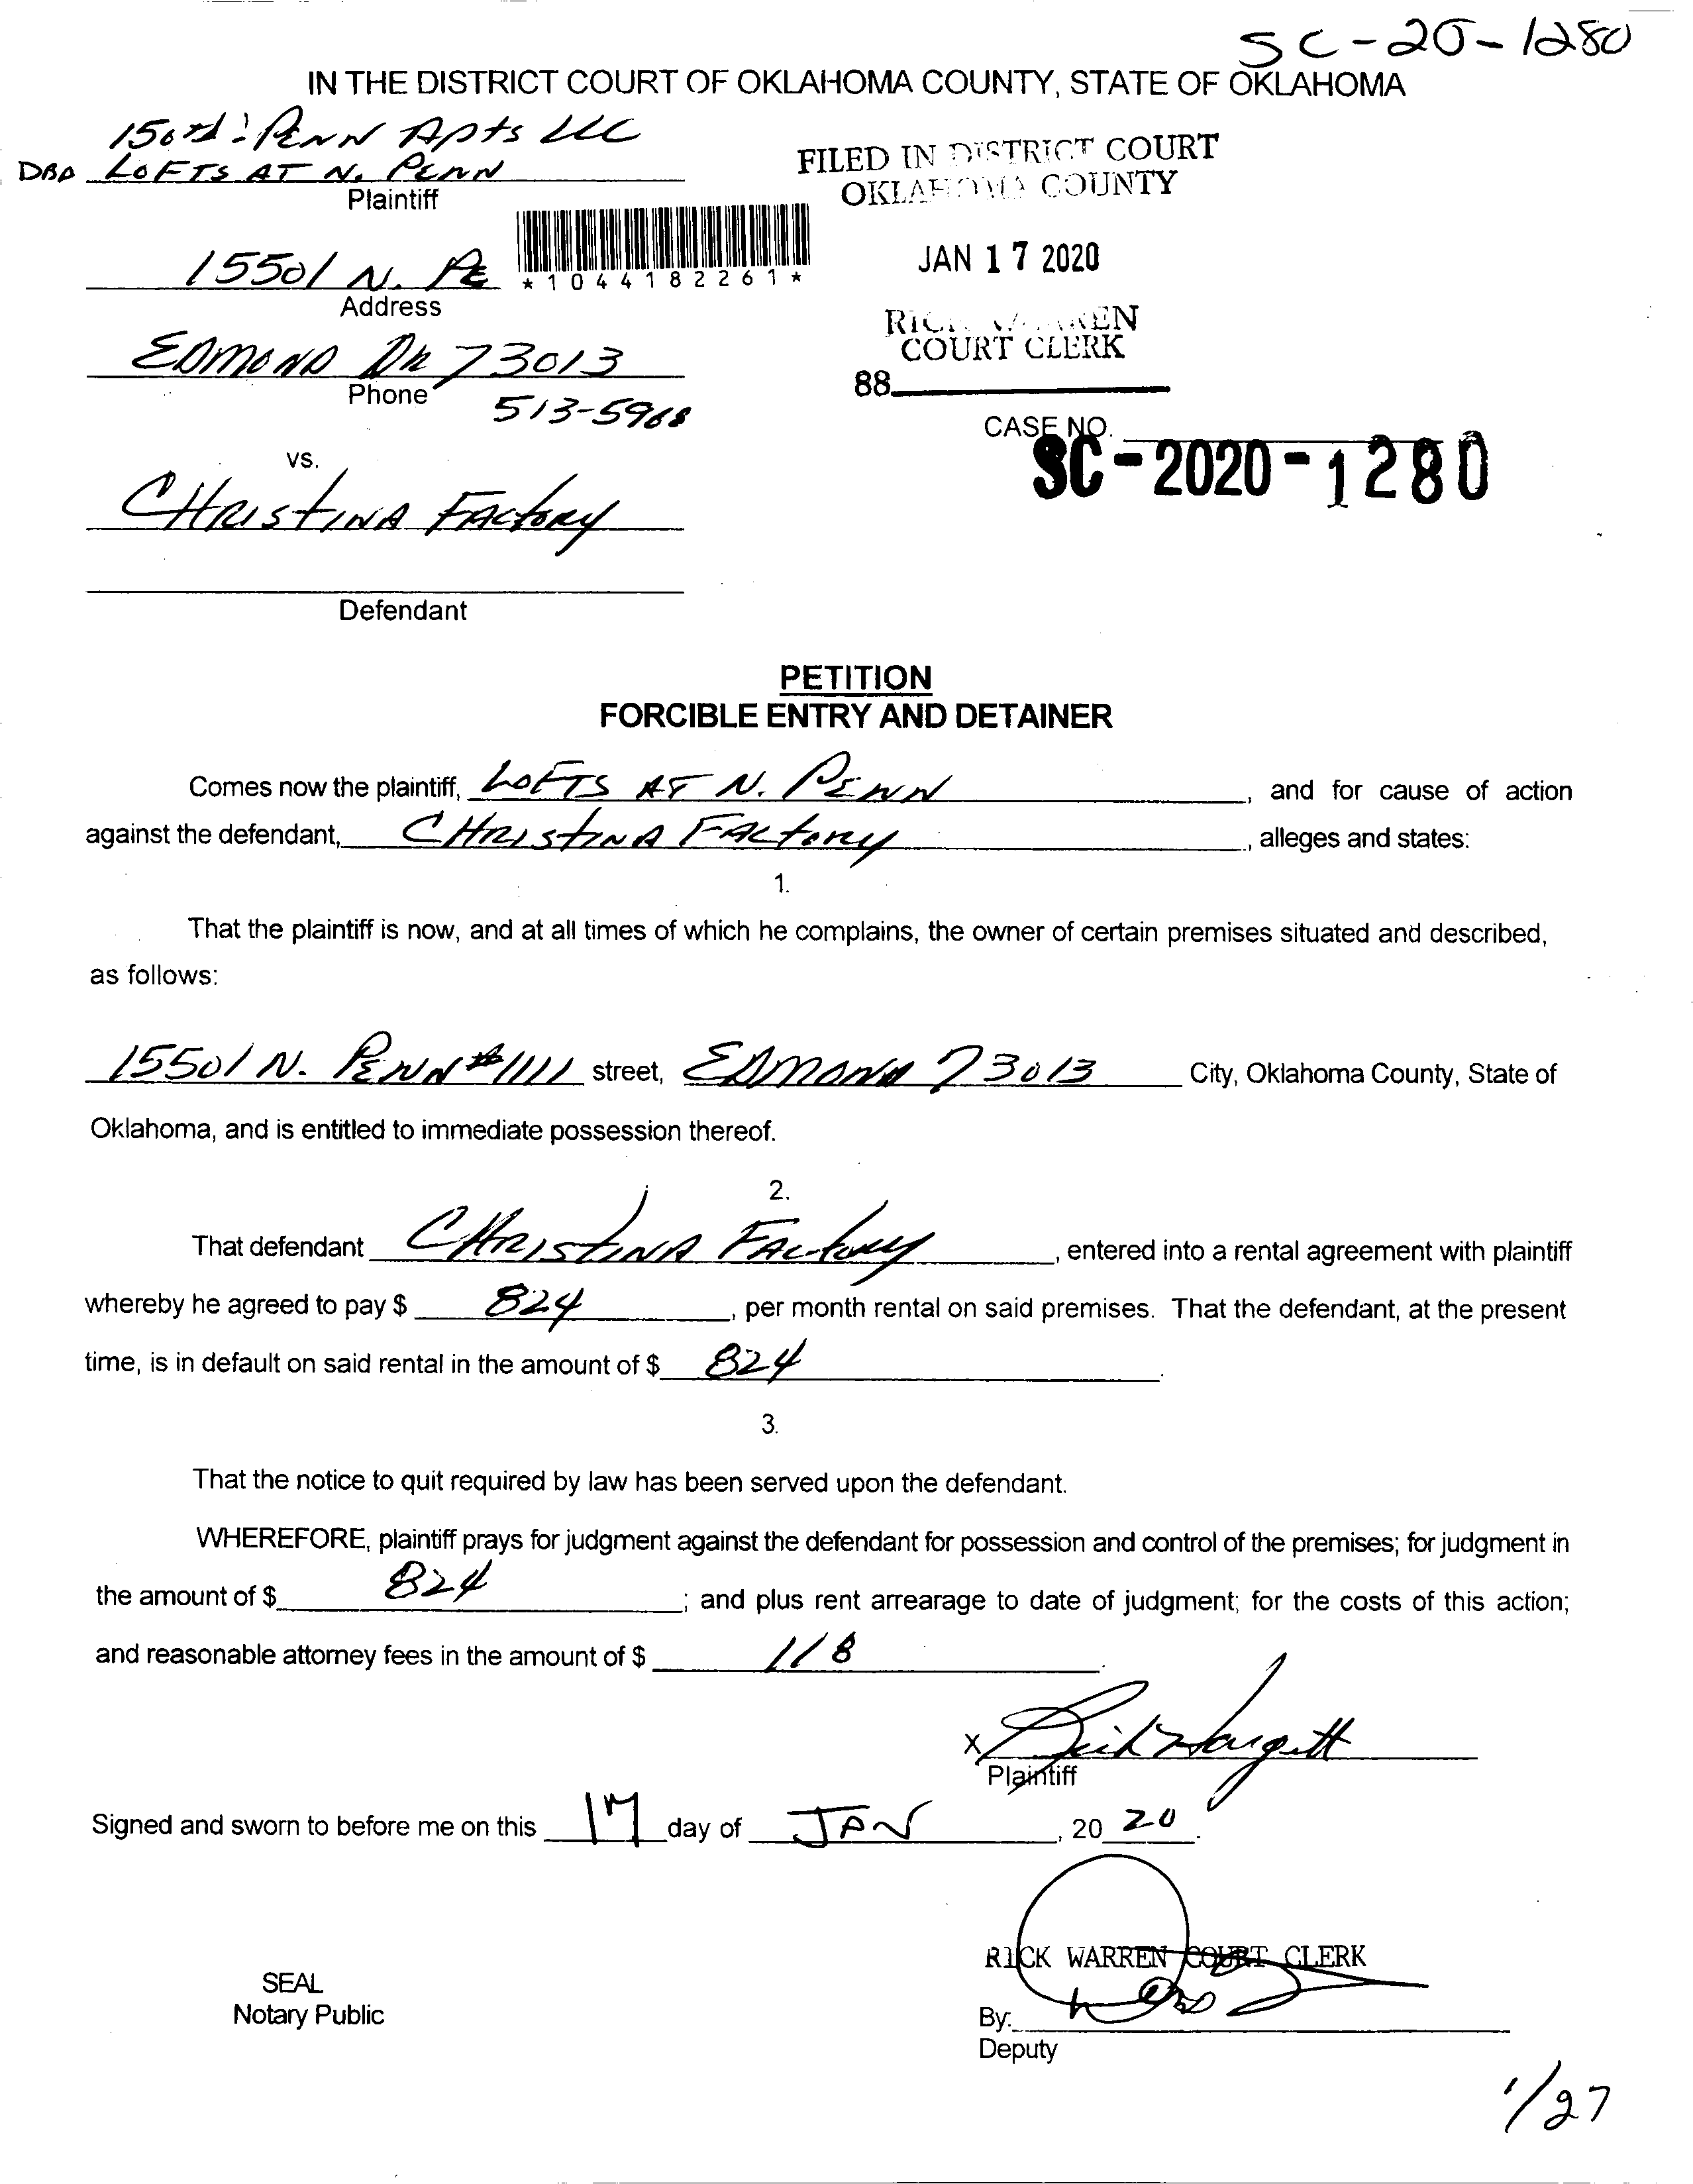 SC-20-1280
IN THE DISTRICT COURT OF OKLAHOMA COUNTY, STATE OF OKLAHOMA
PENN Apts LLC
DBA LOFTS AT N. PENN
Plaintiff
FILED IN DISTRICT COURT
OKLAHOMA COUNTY
15501 N. PE
*1044182261*
JAN 17 2020
Address
RICK WARREN
COURT CLERK
EDMOND OK 73013
88
Phone
513-5968
CASE NO.
SC-2020-1280
vs.
CHRISTINA FACTORY
Defendant
PETITION
FORCIBLE ENTRY AND DETAINER
Comes now the plaintiff, LOFTS AT N. PENN, and for cause of action
against the defendant, CHRISTINA FACTORY, alleges and states:
1.
That the plaintiff is now, and at all times of which he complains, the owner of certain premises situated and described,
as follows:
15501 N. PENN #1111 street, EDMOND 73013 City, Oklahoma County, State of
Oklahoma, and is entitled to immediate possession thereof.
2.
That defendant CHRISTINA FACTORY, entered into a rental agreement with plaintiff
whereby he agreed to pay $ 824, per month rental on said premises. That the defendant, at the present
time, is in default on said rental in the amount of $ 824.
3.
That the notice to quit required by law has been served upon the defendant.
WHEREFORE, plaintiff prays for judgment against the defendant for possession and control of the premises; for judgment in
the amount of $ 824; and plus rent arrearage to date of judgment; for the costs of this action;
and reasonable attorney fees in the amount of $ 118.
X
Plaintiff
Signed and sworn to before me on this 17 day of JAN, 20 20.
RICK WARREN COURT CLERK
SEAL
Notary Public
By:
Deputy
1/27